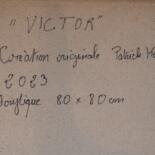 "VICTOR"
Création originale Patrick
2023
Acrylique 80 x 80 cm